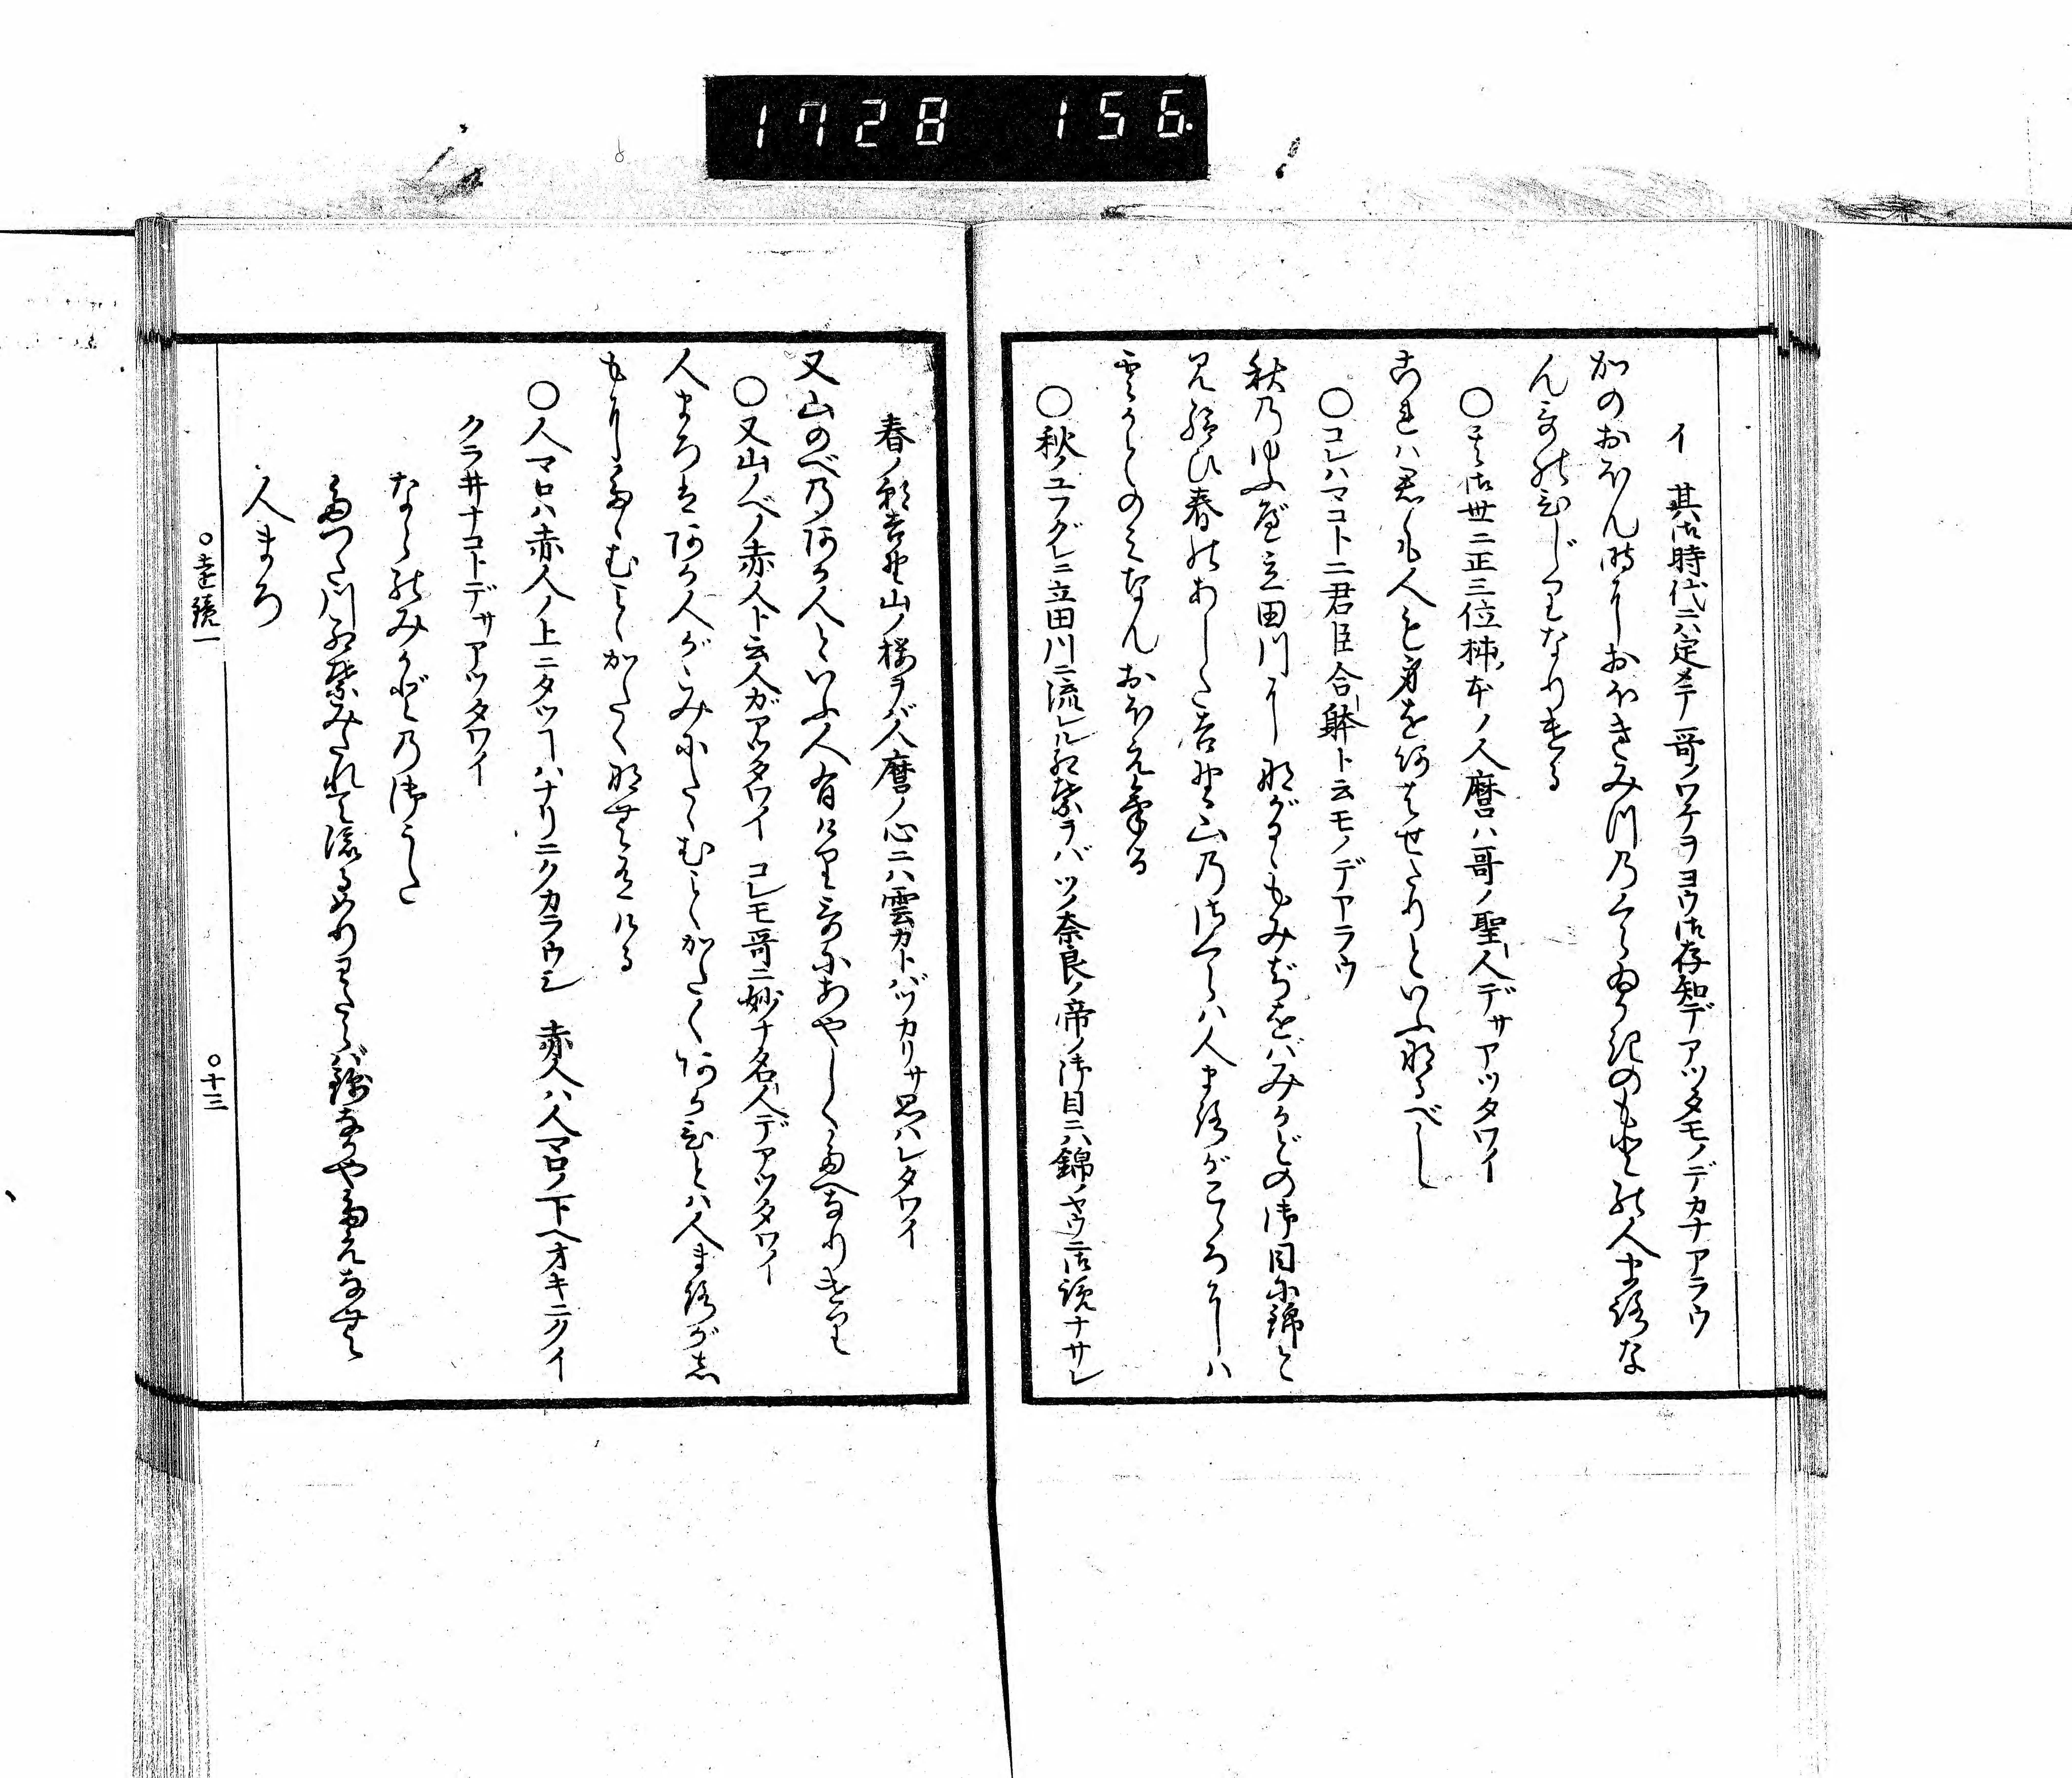 1728 156
イ 其御時代ニハ定メテ哥ノワケヲヨウ御存知デアツタモノデカナアラウ
かのおほん時におほきみつのくらゐかきのもとの人まろな
んうたのひじりなりける
○其御世ニ正三位柿ノ本ノ人麿ハ哥ノ聖人デサアツタワイ
これハ君も人も身をあはせたりといふなるべし
○コレハマコトニ君臣合躰ト云モノデアラウ
秋のゆふべ立田川にながるゝもみぢをバみかどの御目に錦と
見給ひ春のあした吉野ゝ山のさくらハ人まろがこゝろにハ
雲かとのみなんおぼえける
○秋ノユフグレニ立田川ニ流レル紅葉ヲバソノ奈良ノ帝ノ御目ニハ錦ノヤウニ御覧ナサレ
春ノ朝吉野山ノ桜ヲバ人麿ノ心ニハ雲カトバツカリサ思ハレタワイ
又山のべのあか人といふ人有けりうたにあやしくたへなりけり
○又山ノベノ赤人ト云人ガアツタワイ コレモ哥ニ妙ナ名人デアツタワイ
人まろはあか人がゝみにたゝむことかたくあか人ハ人まろがし
もにたゝむことかたくなむ有ける
○人マロハ赤人ノ上ニタツヿハナリニクカラウシ 赤人ハ人マロノ下ヘオキニクイ
クラ井ナコトデサアツタワイ
ならのみかどの御うた
たつた川紅葉みだれて流るめりわたらバ錦なかやたえなむ
人まろ
○遠鏡一
○十三